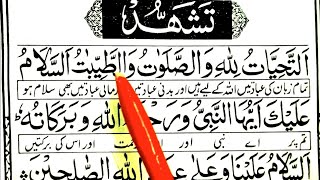 تشهد
التحيات لله والصلوت والطيبت السلام
تمام زبان کی عبادتیں اللہ کے لیے ہیں اور بدنی عبادتیں مالی عبادتیں بھی سلام ہو
عليك ايها النبي ورحمة الله وبركاته
تم پر اے نبی اور اور اس کی برکتیں
السلام علينا وعلى عباد الله الصلحين